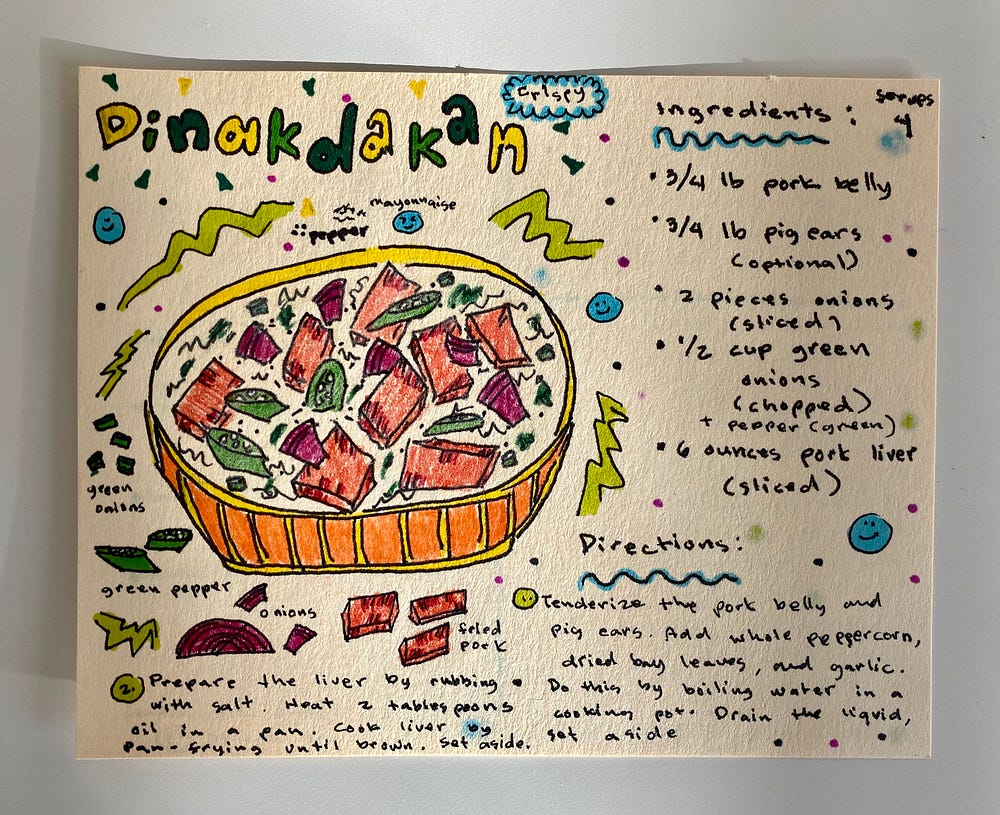 Dinakdakan
crispy
mayonnaise
pepper
Ingredients:
serves
4
• 3/4 lb pork belly
• 3/4 lb pig ears
(optional)
• 2 pieces onions
(sliced)
• 1/2 cup green
onions
(chopped)
+ pepper (green)
• 6 ounces pork liver
(sliced)
green
onions
green pepper
onions
fried
pork
Directions:
Tenderize the pork belly and
pig ears. Add whole peppercorn,
dried bay leaves, and garlic.
• Do this by boiling water in a
cooking pot. Drain the liquid,
set aside
2. Prepare the liver by rubbing
with salt. Heat 2 tablespoons
oil in a pan. Cook liver by
pan-frying until brown. Set aside.